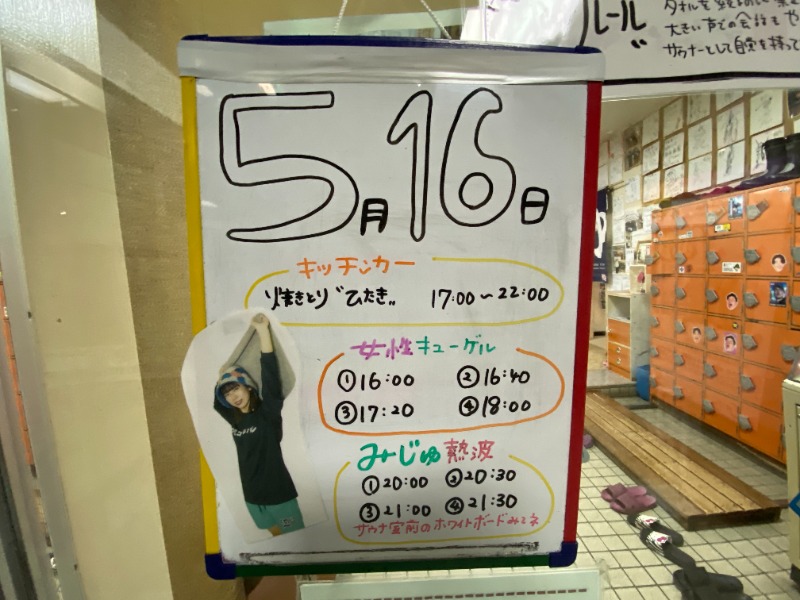 ルール
大きい声での会話もや
サウナーとして自覚を持って
5月16日
キッチンカー
やきとり "ひたき" 17:00~22:00
女性キューゲル
①16:00 ②16:40
③17:20 ④18:00
みじゅ熱波
①20:00 ②20:30
③21:00 ④21:30
サウナ室前のホワイトボードみてネ